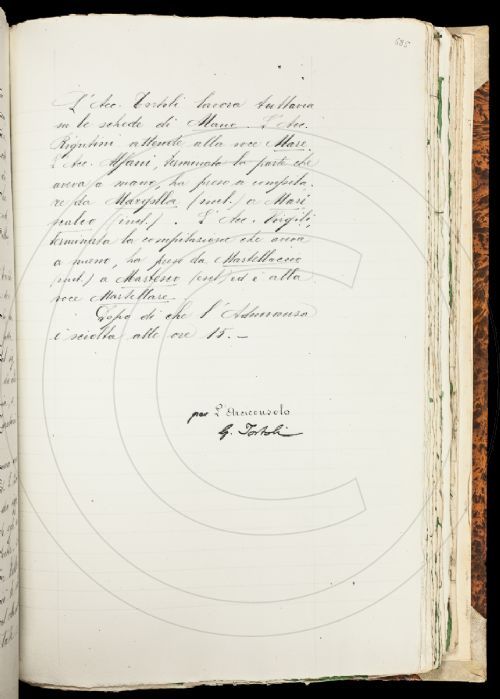 685
L'Acc. Tortoli lavora tuttavia
su le schede di Mano. L'Acc.
Rigutini attende alla voce Mare.
L'Acc. Alfani, terminata la parte che
aveva a mano, ha preso a compila-
re da Margolla (incl.) a
(incl.). L'Acc. Virgili,
terminata la compilazione che aveva
a mano, ha preso da Martellaccio
(incl.) a (escl.) ed è alla
voce Martellare.
Dopo di che l'Adunanza
è sciolta alle ore 15. —
per L'Arciconsolo
G. Tortoli